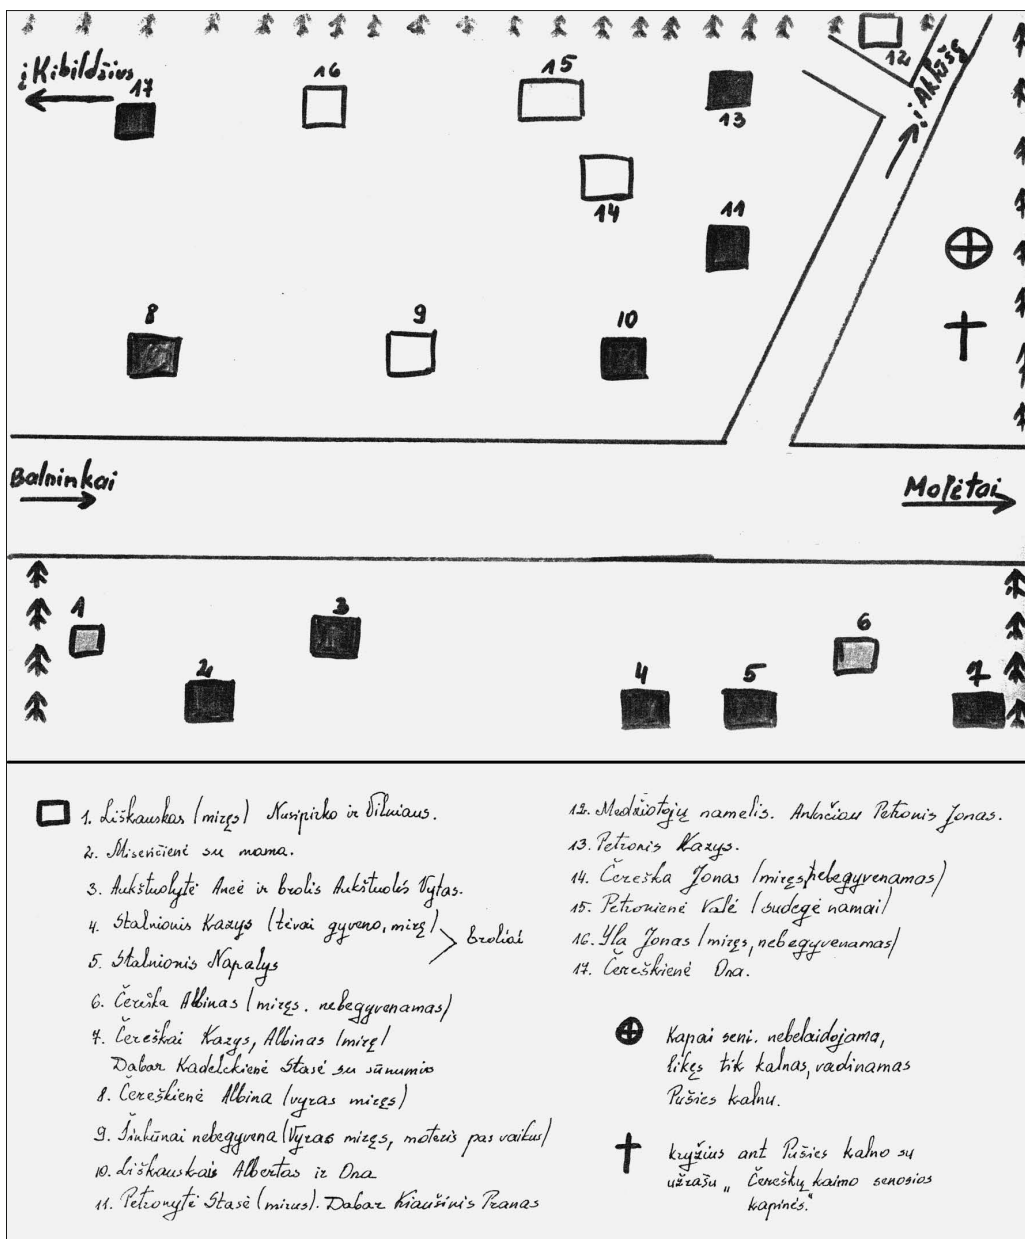 į Kibildžius
17
16
15
13
12
į Aklūšę
14
11
8
9
10
Balninkai
Molėtai
1
2
3
4
5
6
7
1. Liškauskas (miręs) Nusipirko iš Vilniaus.
2. Misevičienė su mama.
3. Aukštuolytė Anė ir brolis Aukštuolis Vytas.
4. Stalnionis Kazys (tėvai gyveno, mirę)
broliai
5. Stalnionis Napalys
6. Čereška Albinas (miręs. nebegyvenamas)
7. Čereškai Kazys, Albinas (mirę)
Dabar Kadelckienė Stasė su sūnumis
8. Čereškienė Albina (vyras miręs)
9. Šinkūnai nebegyvena (Vyras miręs, moteris pas vaikus)
10. Liškauskais Albertas ir Ona
11. Petronytė Stasė (mirus). Dabar Kiaušinis Pranas
12. Medžiotojų namelis. Anksčiau Petronis Jonas.
13. Petronis Kazys.
14. Čereška Jonas (miręs, nebegyvenamas)
15. Petronienė Valė (sudegė namai)
16. Yla Jonas (miręs, nebegyvenamas)
17. Čereškienė Ona.
Kapai seni. nebelaidojama,
likęs tik kalnas, vadinamas
Pušies kalnu.
kryžius ant Pušies kalno su
užrašu „Čereškų kaimo senosios
kapinės."